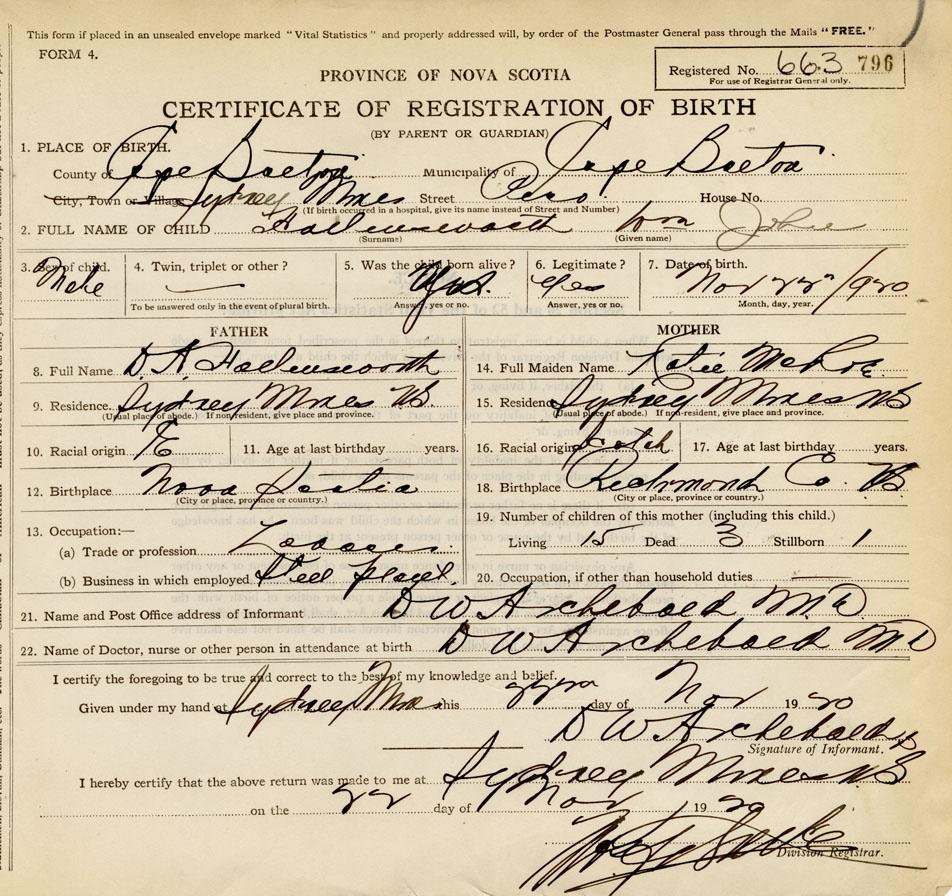 This form if placed in an unsealed envelope marked "Vital Statistics" and properly addressed will, by order of the Postmaster General pass through the Mails "FREE."
FORM 4.
Registered No. 663 796
For use of Registrar General only.
PROVINCE OF NOVA SCOTIA
CERTIFICATE OF REGISTRATION OF BIRTH
(BY PARENT OR GUARDIAN)
1. PLACE OF BIRTH.
County of Cape Breton Municipality of Cape Breton
City, Town or Village Sydney Mines Street House No.
(If birth occurred in a hospital, give its name instead of Street and Number)
2. FULL NAME OF CHILD Hollensworth Wm John
(Surname) (Given name)
3. Sex of child. Male 4. Twin, triplet or other? — 5. Was the child born alive? Yes 6. Legitimate? Yes 7. Date of birth. Nov 22 1920
To be answered only in the event of plural birth. Answer, yes or no. Answer, yes or no. Month, day, year.
FATHER
8. Full Name D. A. Hollensworth
9. Residence Sydney Mines NS
(Usual place of abode.) If non-resident, give place and province.
10. Racial origin 11. Age at last birthday years.
12. Birthplace Nova Scotia
(City or place, province or country.)
13. Occupation:—
(a) Trade or profession
(b) Business in which employed Steel Plant.
MOTHER
14. Full Maiden Name Katie
15. Residence Sydney Mines NS
(Usual place of abode.) If non-resident, give place and province.
16. Racial origin Scotch 17. Age at last birthday years.
18. Birthplace Richmond Co. NS
(City or place, province or country.)
19. Number of children of this mother (including this child.)
Living 15 Dead 3 Stillborn 1
20. Occupation, if other than household duties —
21. Name and Post Office address of Informant D W Archibald MD
22. Name of Doctor, nurse or other person in attendance at birth D W Archibald MD
I certify the foregoing to be true and correct to the best of my knowledge and belief.
Given under my hand at Sydney Mines this 22nd day of Nov 1920
D W Archibald
Signature of Informant.
I hereby certify that the above return was made to me at Sydney Mines NS
on the 22 day of Nov 1920
Division Registrar.